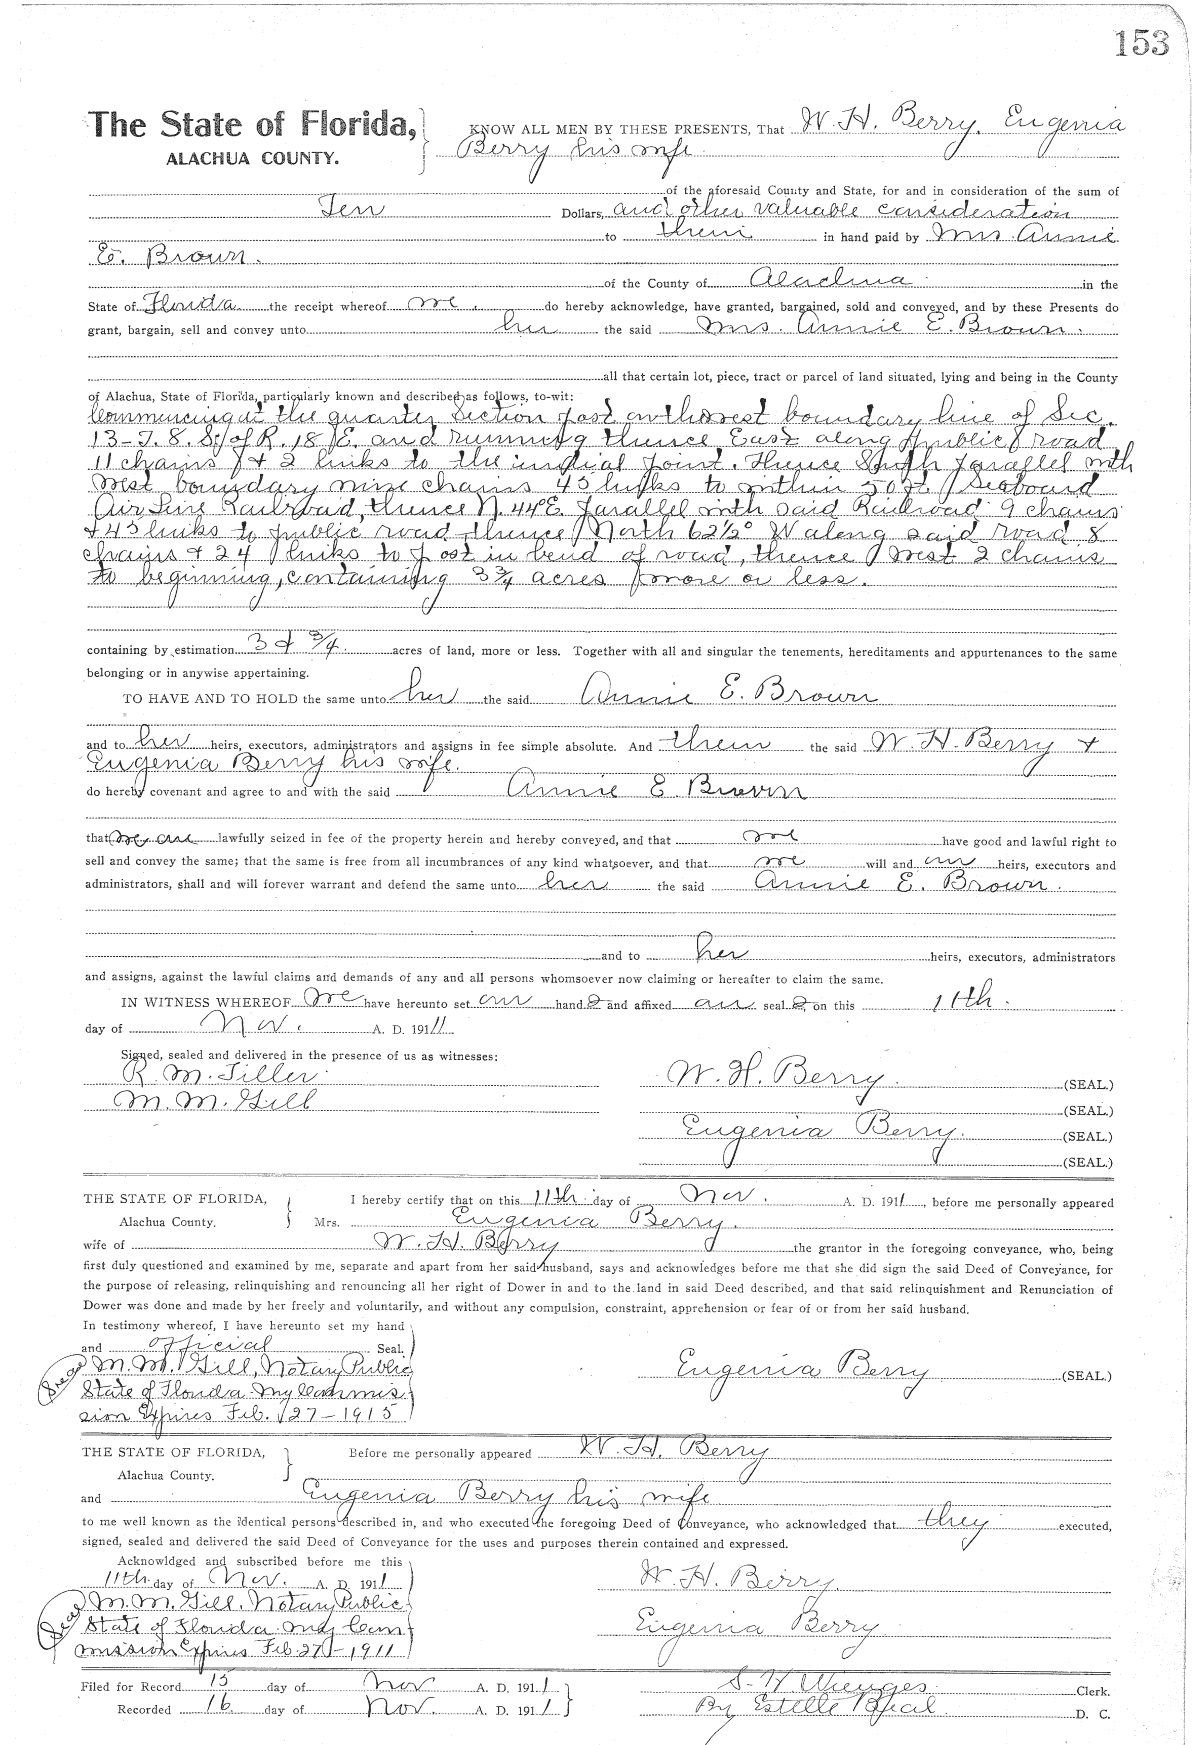 153
The State of Florida, KNOW ALL MEN BY THESE PRESENTS, That W. H. Berry, Eugenia
ALACHUA COUNTY. Berry his wife
of the aforesaid County and State, for and in consideration of the sum of
Ten Dollars, and other valuable consideration
to them in hand paid by Mrs. Annie
E. Brown.
of the County of Alachua in the
State of Florida the receipt whereof we do hereby acknowledge, have granted, bargained, sold and conveyed, and by these Presents do
grant, bargain, sell and convey unto her the said Mrs. Annie E. Brown.
all that certain lot, piece, tract or parcel of land situated, lying and being in the County
of Alachua, State of Florida, particularly known and described as follows, to-wit:
Commencing at the quarter Section post on the west boundary line of Sec.
13-T. 8. S. of R. 18 E. and running thence East along public road
11 chains & 2 links to the initial point. Thence South parallel with
West boundary nine chains 45 links to within 50 ft Seaboard
Air Line Railroad, thence N. 44°E. parallel with said Railroad 9 chains
& 45 links to public road thence North 62½° W along said road 8
chains & 24 links to post in bend of road, thence West 2 chains
to beginning, containing 3¾ acres more or less.
containing by estimation 3 & 3/4 acres of land, more or less. Together with all and singular the tenements, hereditaments and appurtenances to the same
belonging or in anywise appertaining.
TO HAVE AND TO HOLD the same unto her the said Annie E. Brown
and to her heirs, executors, administrators and assigns in fee simple absolute. And them the said W. H. Berry &
Eugenia Berry his wife.
do hereby covenant and agree to and with the said Annie E Brown
that we are lawfully seized in fee of the property herein and hereby conveyed, and that we have good and lawful right to
sell and convey the same; that the same is free from all incumbrances of any kind whatsoever, and that we will and our heirs, executors and
administrators, shall and will forever warrant and defend the same unto her the said Annie E. Brown.
and to her heirs, executors, administrators
and assigns, against the lawful claims and demands of any and all persons whomsoever now claiming or hereafter to claim the same.
IN WITNESS WHEREOF We have hereunto set our hand s and affixed our seal s on this 11th.
day of Nov. A. D. 1911
Signed, sealed and delivered in the presence of us as witnesses:
R. M. Tiller W. H. Berry (SEAL.)
M. M. Gill (SEAL.)
Eugenia Berry. (SEAL.)
(SEAL.)
THE STATE OF FLORIDA, I hereby certify that on this 11th day of Nov. A. D. 1911, before me personally appeared
Alachua County. Mrs. Eugenia Berry.
wife of W. H. Berry the grantor in the foregoing conveyance, who, being
first duly questioned and examined by me, separate and apart from her said husband, says and acknowledges before me that she did sign the said Deed of Conveyance, for
the purpose of releasing, relinquishing and renouncing all her right of Dower in and to the land in said Deed described, and that said relinquishment and Renunciation of
Dower was done and made by her freely and voluntarily, and without any compulsion, constraint, apprehension or fear of or from her said husband.
In testimony whereof, I have hereunto set my hand
and official Seal.
Seal M. M. Gill, Notary Public Eugenia Berry (SEAL.)
State of Florida My Commis
sion Expires Feb. 27-1915
THE STATE OF FLORIDA, Before me personally appeared W. H. Berry
Alachua County.
and Eugenia Berry his wife
to me well known as the identical persons described in, and who executed the foregoing Deed of Conveyance, who acknowledged that they executed,
signed, sealed and delivered the said Deed of Conveyance for the uses and purposes therein contained and expressed.
Acknowldged and subscribed before me this
11th day of Nov. A. D. 1911 W. H. Berry.
Seal M. M. Gill, Notary Public
State of Florida my Com Eugenia Berry
mission Expires Feb. 27-1911
Filed for Record 15 day of Nov A. D. 1911 S. H. Wienges Clerk.
Recorded 16 day of Nov. A. D. 1911 By Estelle D. C.